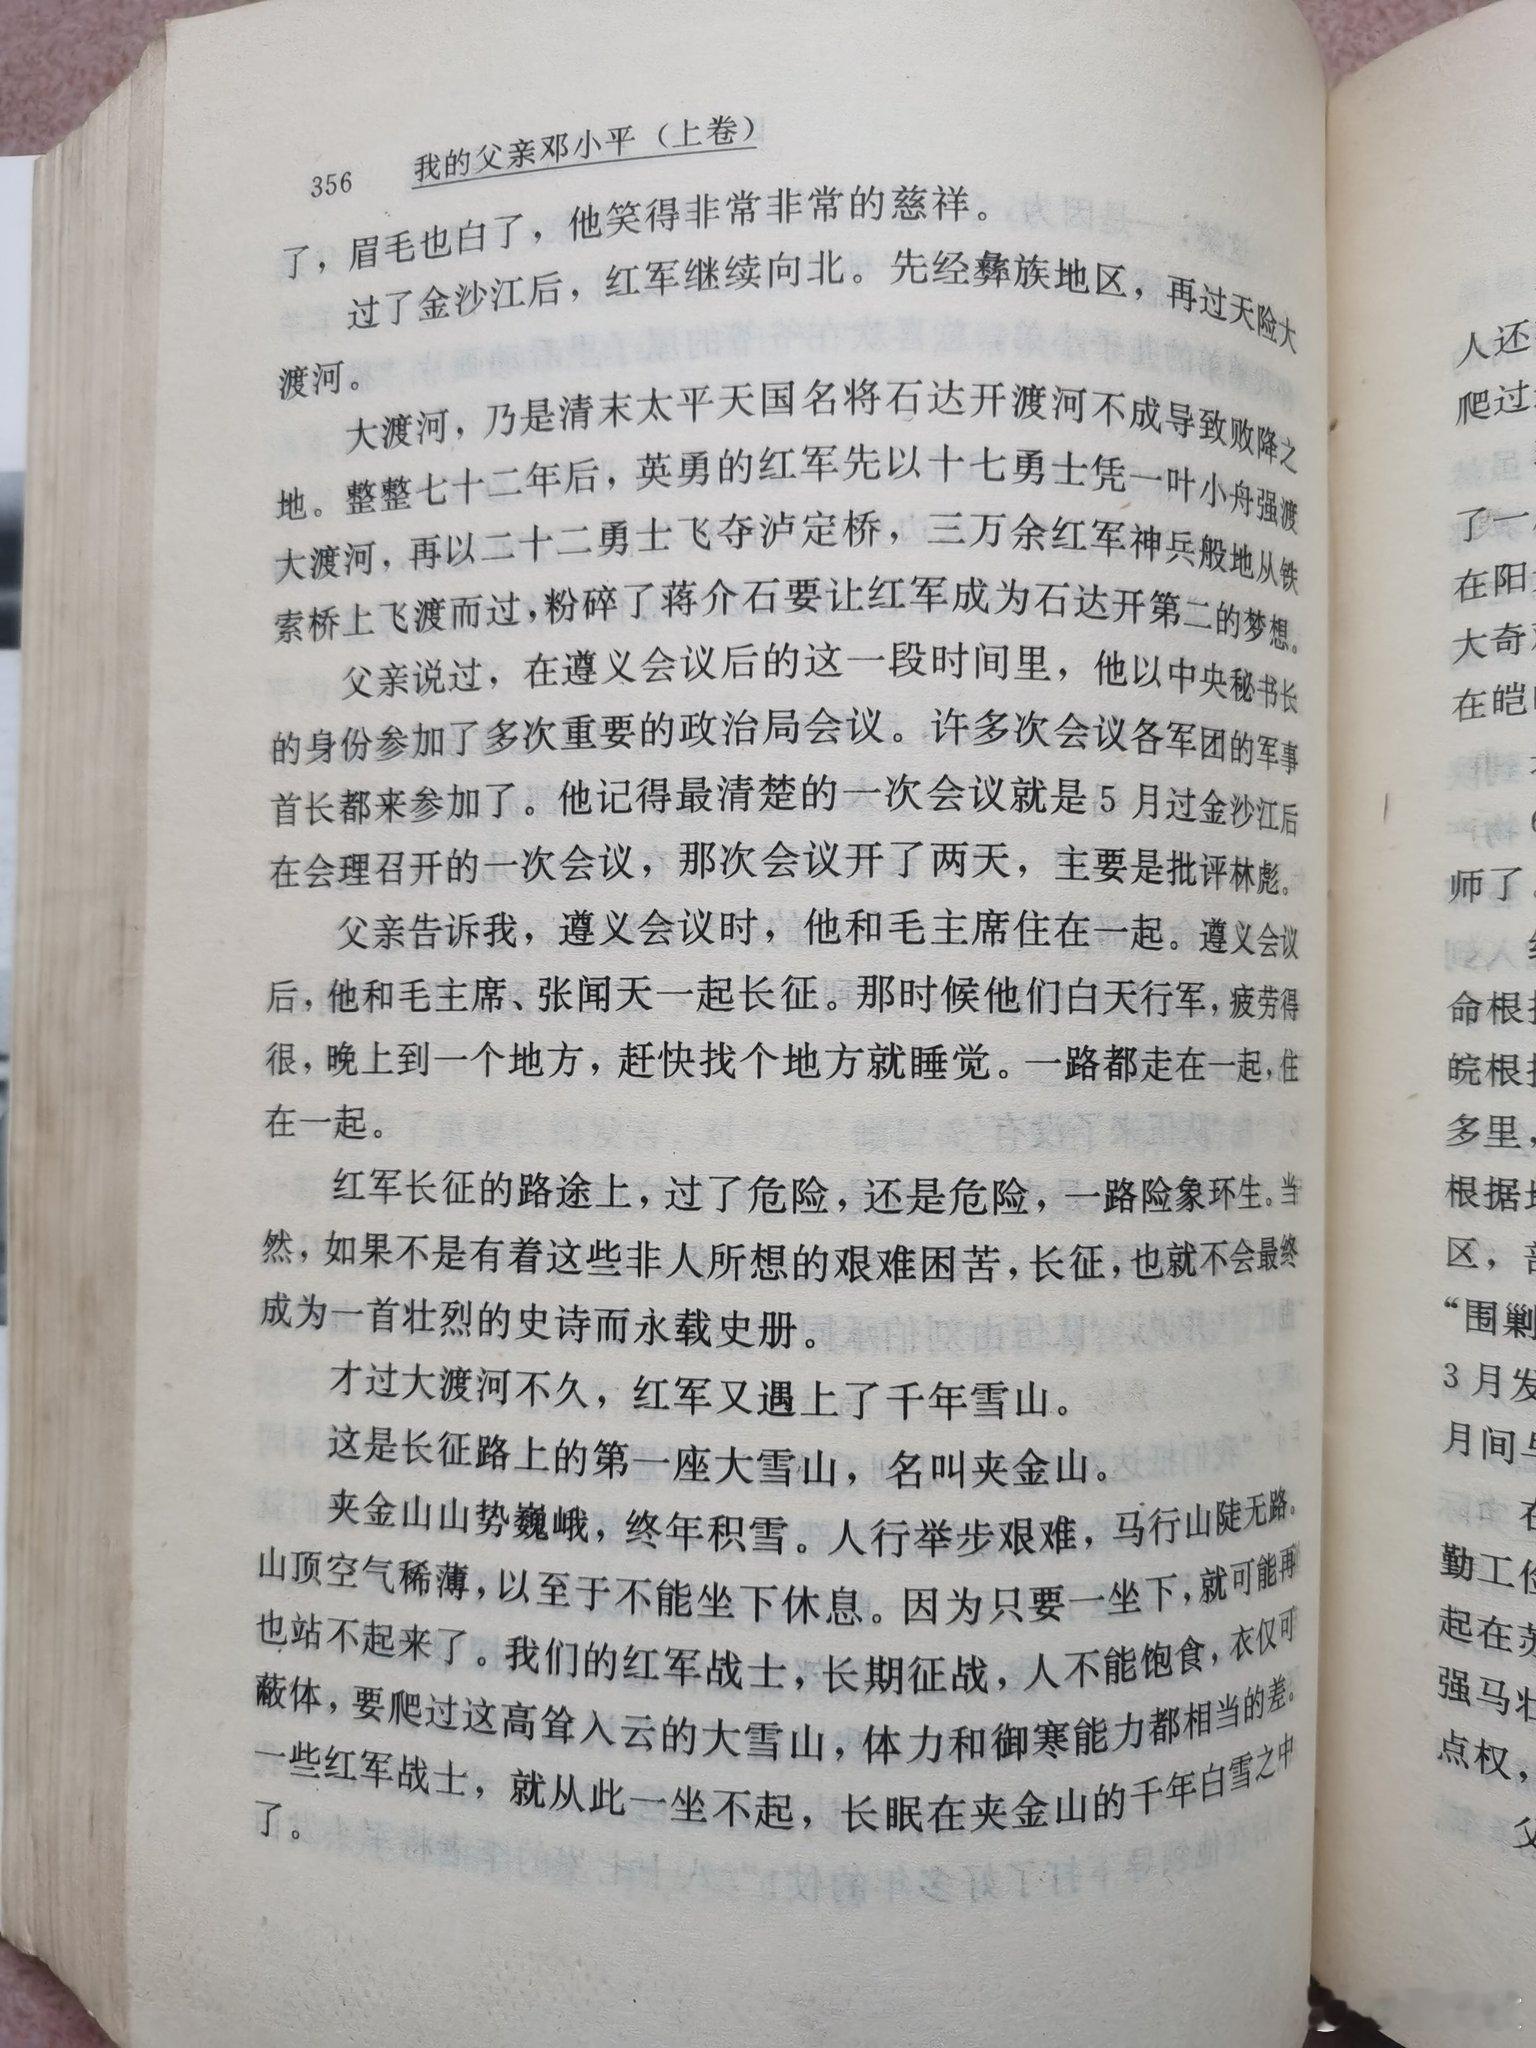 356 我的父亲邓小平（上卷）
了，眉毛也白了，他笑得非常非常的慈祥。
过了金沙江后，红军继续向北。先经彝族地区，再过天险大
渡河。
大渡河，乃是清末太平天国名将石达开渡河不成导致败降之
地。整整七十二年后，英勇的红军先以十七勇士凭一叶小舟强渡
大渡河，再以二十二勇士飞夺泸定桥，三万余红军神兵般地从铁
索桥上飞渡而过，粉碎了蒋介石要让红军成为石达开第二的梦想。
父亲说过，在遵义会议后的这一段时间里，他以中央秘书长
的身份参加了多次重要的政治局会议。许多次会议各军团的军事
首长都来参加了。他记得最清楚的一次会议就是5月过金沙江后
在会理召开的一次会议，那次会议开了两天，主要是批评林彪。
父亲告诉我，遵义会议时，他和毛主席住在一起。遵义会议
后，他和毛主席、张闻天一起长征。那时候他们白天行军，疲劳得
很，晚上到一个地方，赶快找个地方就睡觉。一路都走在一起，住
在一起。
红军长征的路途上，过了危险，还是危险，一路险象环生。当
然，如果不是有着这些非人所想的艰难困苦，长征，也就不会最终
成为一首壮烈的史诗而永载史册。
才过大渡河不久，红军又遇上了千年雪山。
这是长征路上的第一座大雪山，名叫夹金山。
夹金山山势巍峨，终年积雪。人行举步艰难，马行山陡无路。
山顶空气稀薄，以至于不能坐下休息。因为只要一坐下，就可能再
也站不起来了。我们的红军战士，长期征战，人不能饱食，衣仅可
蔽体，要爬过这高耸入云的大雪山，体力和御寒能力都相当的差。
一些红军战士，就从此一坐不起，长眠在夹金山的千年白雪之中
了。
人还
爬过
了一
在阳
大奇
在皑
师了。
命根
皖根
多里，
根据
区，
“围剿
3月发
月间
在
勤工俭
起在苏
强马壮
点权，
父